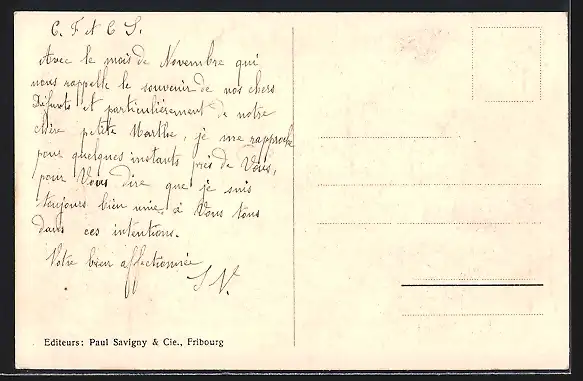 C. F et C S.
Avec le mois de Novembre qui
nous rappelle le souvenir de nos chers
Défunts et particulièrement de notre
chère petite Marthe, je me rapproche
pour quelques instants près de Vous,
pour Vous dire que je suis
toujours bien unie à Vous tous
dans ces intentions.
Votre bien affectionnée
S V.
Editeurs: Paul Savigny & Cie., Fribourg